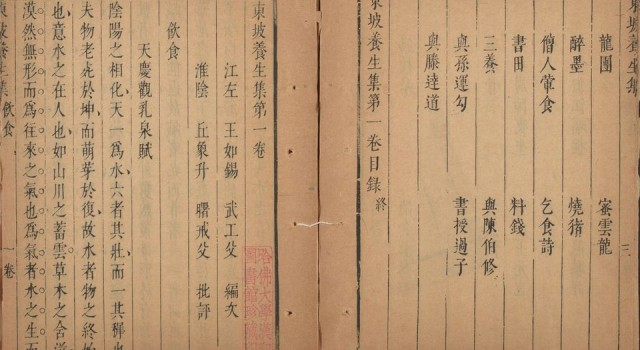 東坡養生集 三
龍團 蜜雲龍
醉墨 燒猪
僧人葷食 乞食詩
書田 料錢
三養 與陳伯修
與孫運勾 書授過子
與滕達道
東坡養生集第一卷目錄終
東坡養生集第一卷
江左 王如錫 武工父 編次
淮陰 丘象升 曙戒父 批評
飲食
天慶觀乳泉賦
陰陽之相化天一爲水六者其壯而一其穉也
夫物老死於坤而萌芽於復故水者物之終始
也意水之在人也如山川之蓄雲草木之含滋
漠然無形而爲往來之氣也爲氣者水之生而
東坡養生集 飲食 一卷